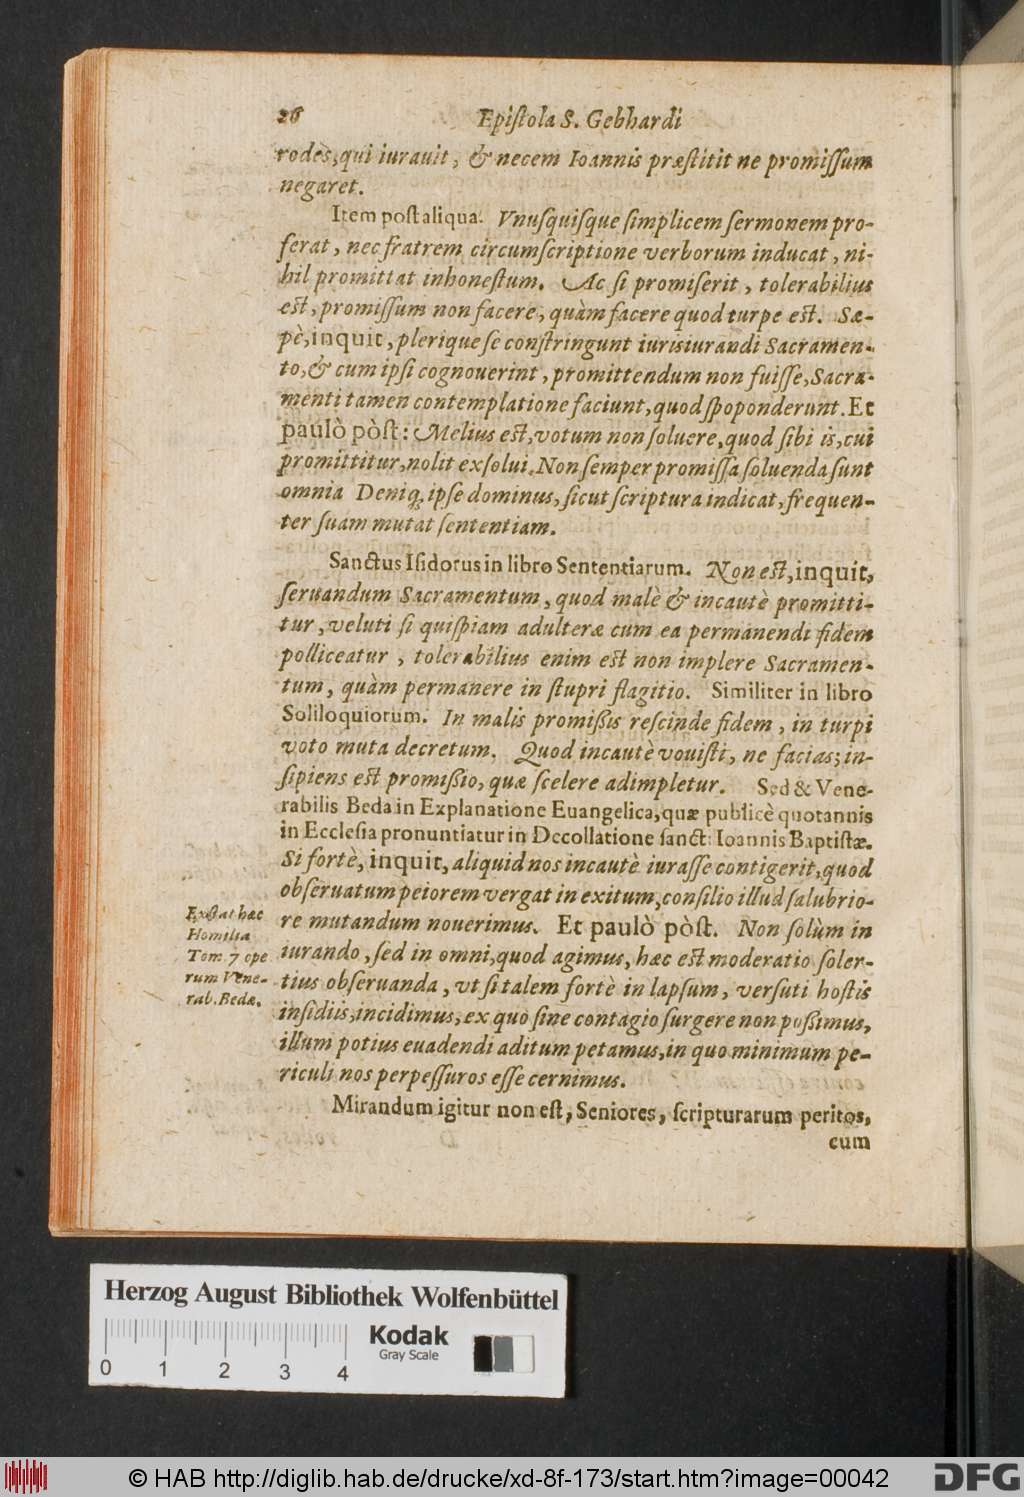 26 Epistola S. Gebhardi
rodes, qui iurauit, & necem Ioannis præstitit ne promissum
negaret.
Item post aliqua. Vnusquisque simplicem sermonem pro-
ferat, nec fratrem circumscriptione verborum inducat, ni-
hil promittat inhonestum. Ac si promiserit, tolerabilius
est, promissum non facere, quàm facere quod turpe est. Sæ-
pè, inquit, plerique se constringunt iurisiurandi Sacramen-
to, & cum ipsi cognouerint, promittendum non fuisse, Sacra-
menti tamen contemplatione faciunt, quod spoponderunt. Et
paulò pòst: Melius est, votum non soluere, quod sibi is, cui
promittitur, nolit exsolui. Non semper promissa soluenda sunt
omnia Deniq, ipse dominus, sicut scriptura indicat, frequen-
ter suam mutat sententiam.
Sanctus Isidorus in libro Sententiarum. Non est, inquit,
seruandum Sacramentum, quod malè & incautè promitti-
tur, veluti si quispiam adulteræ cum ea permanendi fidem
polliceatur, tolerabilius enim est non implere Sacramen-
tum, quàm permanere in stupri flagitio. Similiter in libro
Soliloquiorum. In malis promißis rescinde fidem, in turpi
voto muta decretum. Quod incautè vouisti, ne facias; in-
sipiens est promißio, quæ scelere adimpletur. Sed & Vene-
rabilis Beda in Explanatione Euangelica, quæ publicè quotannis
in Ecclesia pronuntiatur in Decollatione sanct: Ioannis Baptistæ.
Si fortè, inquit, aliquid nos incautè iurasse contigerit, quod
obseruatum peiorem vergat in exitum, consilio illud salubrio-
re mutandum nouerimus. Et paulò pòst. Non solùm in
iurando, sed in omni, quod agimus, hæc est moderatio soler-
tius obseruanda, vt si talem fortè in lapsum, versuti hostis
insidiis, incidimus, ex quo sine contagio surgere non poßimus,
illum potius euadendi aditum petamus, in quo minimum pe-
riculi nos perpessuros esse cernimus.
Mirandum igitur non est, Seniores, scripturarum peritos,
cum
Exstat hæc
Homilia
Tom. 7 ope
rum Vene-
rab. Bedæ.
Herzog August Bibliothek Wolfenbüttel
Kodak
Gray Scale
0 1 2 3 4
© HAB http://diglib.hab.de/drucke/xd-8f-173/start.htm?image=00042
DFG